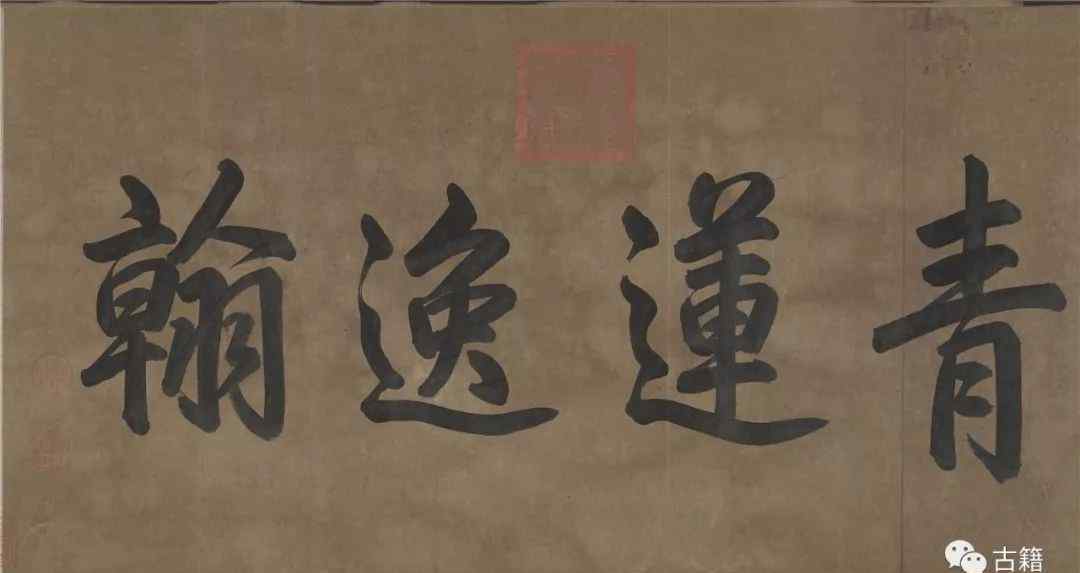 青蓮逸翰
古籍